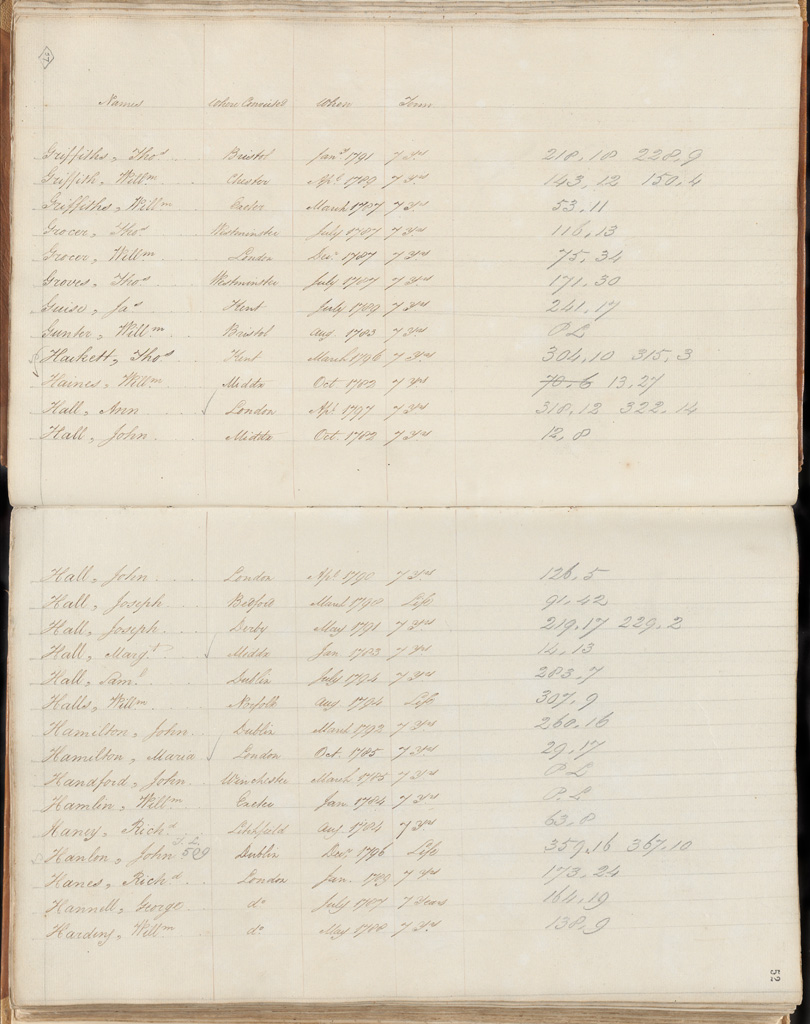 Names Where Convicted When Term
Griffiths, Thos Bristol Jany 1791 7 Yrs 218,18 228,9
Griffith, Willm Chester Apl 1789 7 Yrs 143,12 150,4
Griffiths, Willm Exeter March 1787 7 Yrs 53,11
Grocer, Thos Westminster July 1787 7 Yrs 116,13
Grocer, Willm London Decr 1787 7 Yrs 75,34
Groves, Thos Westminster July 1787 7 Yrs 171,30
Guise, Jas Kent July 1789 7 Yrs 241,17
Gunter, Willm Bristol Aug 1783 7 Yrs P L
Hackett, Thos Kent March 1796 7 Yrs 304,10 315,3
Haines, Willm Middx Oct 1782 7 Yrs 70,6 13,27
Hall, Ann London Apl 1797 7 Yrs 318,12 322,14
Hall, John Middx Oct. 1782 7 Yrs 12,8
Hall, John London Apl 1790 7 Yrs 126,5
Hall, Joseph Bedford March 1790 Life 91,42
Hall, Joseph Derby May 1791 7 Yrs 219,17 229,2
Hall, Margt Middx Jan 1783 7 Yrs 14,13
Hall, Saml Dublin July 1794 7 Yrs 283,7
Halls, Willm Norfolk Aug 1794 Life 307,9
Hamilton, John Dublin March 1792 7 Yrs 260,16
Hamilton, Maria London Oct. 1785 7 Yrs 29,17
Handford, John Winchester March 1785 7 Yrs P L
Hamlin, Willm Exeter Jan 1784 7 Yrs P. L
Haney, Richd Litchfield Aug 1784 7 Yrs 63,8
Hanlon, John 509 Dublin Decr 1796 Life 359,16 367,10
Hanes, Richd London Jan. 1789 7 Yrs 173,24
Hannell, George do July 1787 7 Years 164,19
Harding, Willm do May 1788 7 Yrs 138,9
52